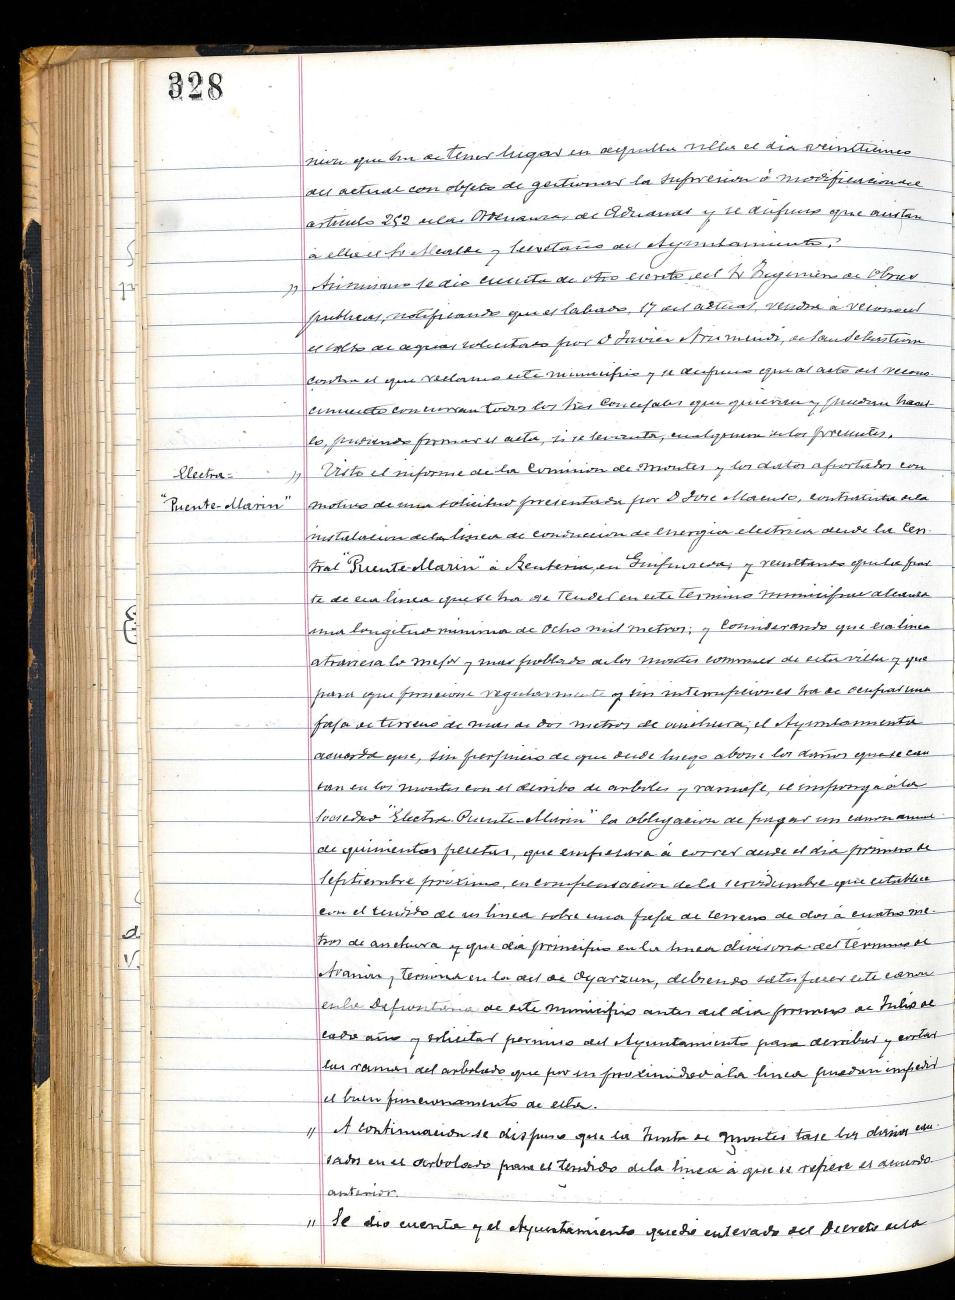 328
nion que ha de tener lugar en aquella villa el dia veinticinco
del actual con objeto de gestionar la supresion ó modificacion del
articulo 252 de las Ordenanzas de Aduanas y se dispuso que asistan
á ella el Sr Alcalde y Secretario del Ayuntamiento.
" Asimismo se dio cuenta de otro escrito del Sr Ingeniero de Obras
publicas, notificando que el Sabado, 17 del actual, vendra á reconocer
el salto de aguas solicitado por D Javier Arizmendi, de San Sebastian
contra el que reclamo este municipio y se dispuso que al acto del recono-
cimiento concurran todos los Sres Concejales que quieran y puedan hacer-
lo, pudiendo firmar el acta, si se levanta, cualquiera de los presentes.
Electra= " Visto el informe de la Comision de Montes y los datos aportados con
"Puente-Marin" motivo de una solicitud presentada por D Jose Macuso, contratista de la
instalacion de la linea de conduccion de energia electrica desde la Cen-
tral "Puente-Marin" á Renteria, en Guipuzcoa; y resultando que la par-
te de esa linea que se ha de tender en este termino municipal alcanza
una longitud minima de ocho mil metros; y Considerando que esa linea
atraviesa lo mejor y mas poblado de los montes comunes de esta villa y que
para que funcione regularmente y sin interrupciones ha de ocupar una
faja de terreno de mas de dos metros de anchura; el Ayuntamiento
acuerda que, sin perjuicio de que desde luego abone los daños que se cau
san en los montes con el derribo de arboles y ramaje, se imponga á la
Sociedad "Electra Puente-Marin" la obligacion de pagar un canon anual
de quinientas pesetas, que empezará á correr desde el dia primero de
Septiembre próximo, en compensacion de la servidumbre que establece
con el tendido de su linea sobre una faja de terreno de dos á cuatro me-
tros de anchura y que da principio en la linea divisoria del término de
Aranaz y termina en la del de Oyarzun, debiendo satisfacer este canon
en la Depositaria de este municipio antes del dia primero de Julio de
cada año y solicitar permiso del Ayuntamiento para derribar y cortar
las ramas del arbolado que por su proximidad á la linea puedan impedir
el buen funcionamiento de esta.
" A continuacion se dispuso que la Junta de Montes tase los daños cau-
sados en el arbolado para el tendido de la linea á que se refiere el acuerdo
anterior.
" Se dio cuenta y el Ayuntamiento quedó enterado del Decreto de la